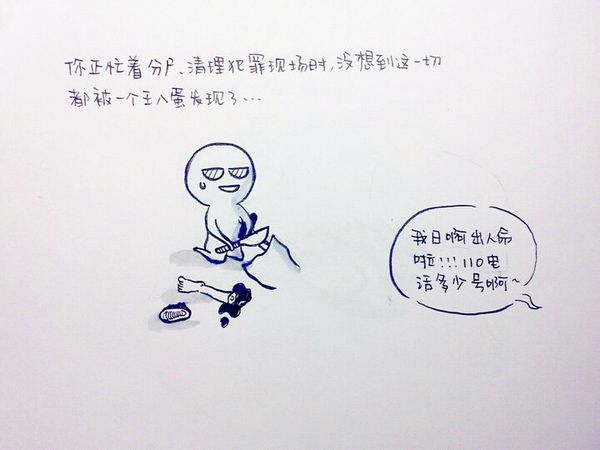 你正忙着分尸、清理犯罪现场时,没想到这一切
都被一个王八蛋发现了...
我日啊出人命
啦!!!110电
话多少号啊~